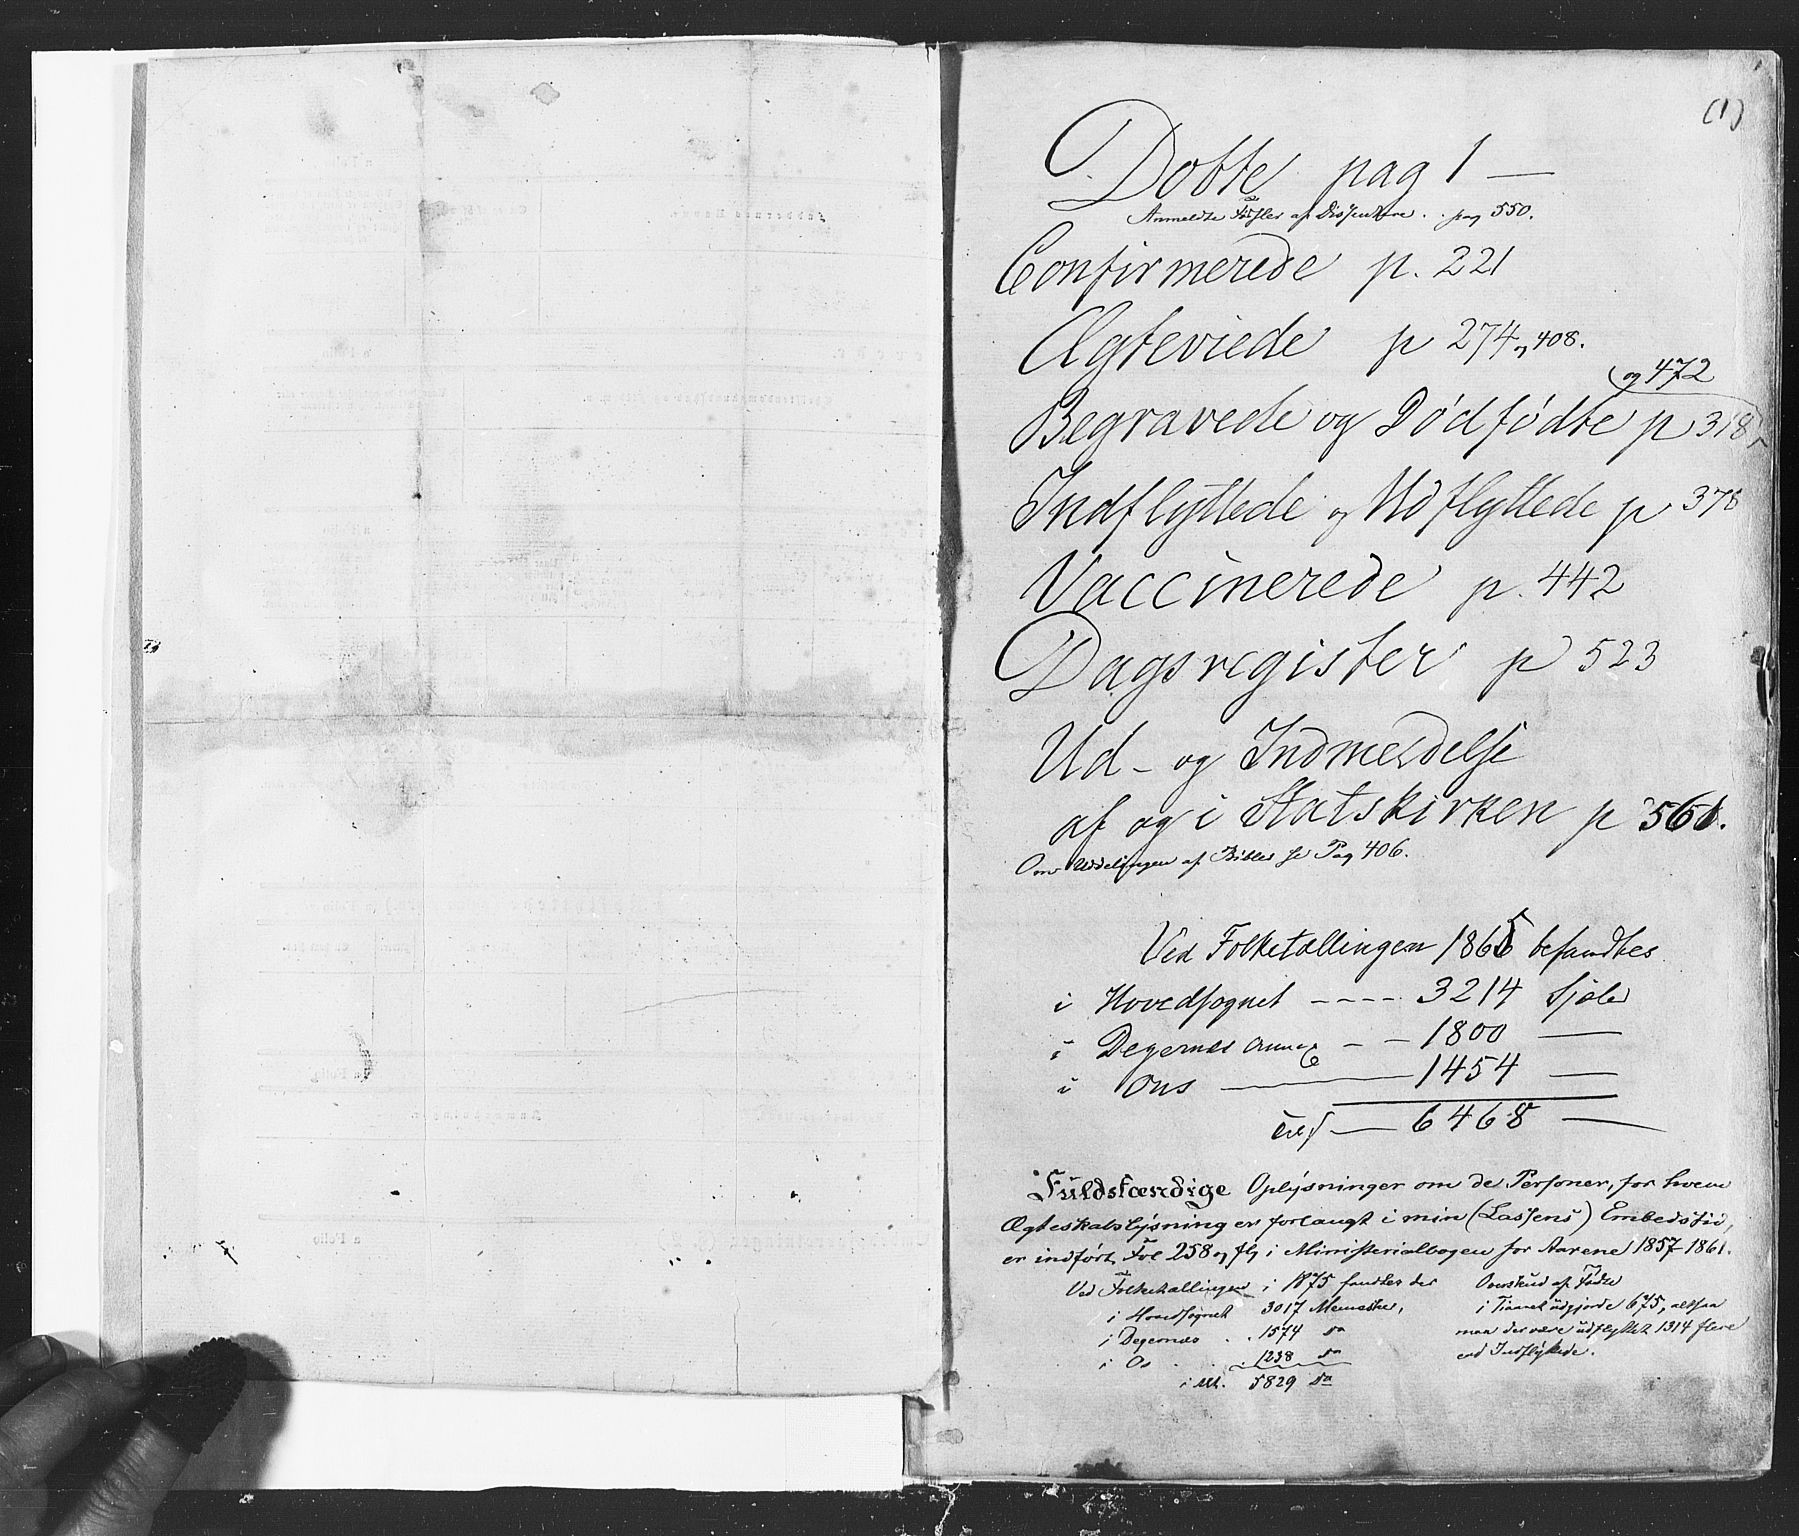 (1)
Døbte pag 1 —
Anmeldte Fødsler af Dissentere . . pag 550.
Confirmerede p. 221
Ægteviede p 274 og 408.
og 472
Begravede og Dødfødte p 318
Indflyttede og Udflyttede p 378
Vaccinerede p. 442
Dagsregister p 523
Ud- og Indmeldelse
af og i Statskirken p 561.
Om Uddelingen af Bibler se Pag 406.
Ved Folketællingen 1865 befandtes
i Hovedsognet - - - - 3214 Sjæle
i Degernes Annex - - 1800 —
i Ons — 1454 —
Tils — 6468 —
Fuldstændige Oplysninger om de Personer, for hvem
Ægteskabslysning er forlangt i min (Lassens) Embedstid,
er indført Fol 258 og flg i Ministerialbogen for Aarene 1857-1861.
Ved Folketællingen i 1875 fandtes der
i Hovedsognet 3017 Mennesker,
i Degernes . . 1574 do
i Os . . . 1238 do
i Alt. 5829 do
Overskud af Fødte
i Tiaaret udgjorde 675, altsaa
maa der være udflyttet 1314 flere
end Indflyttede.